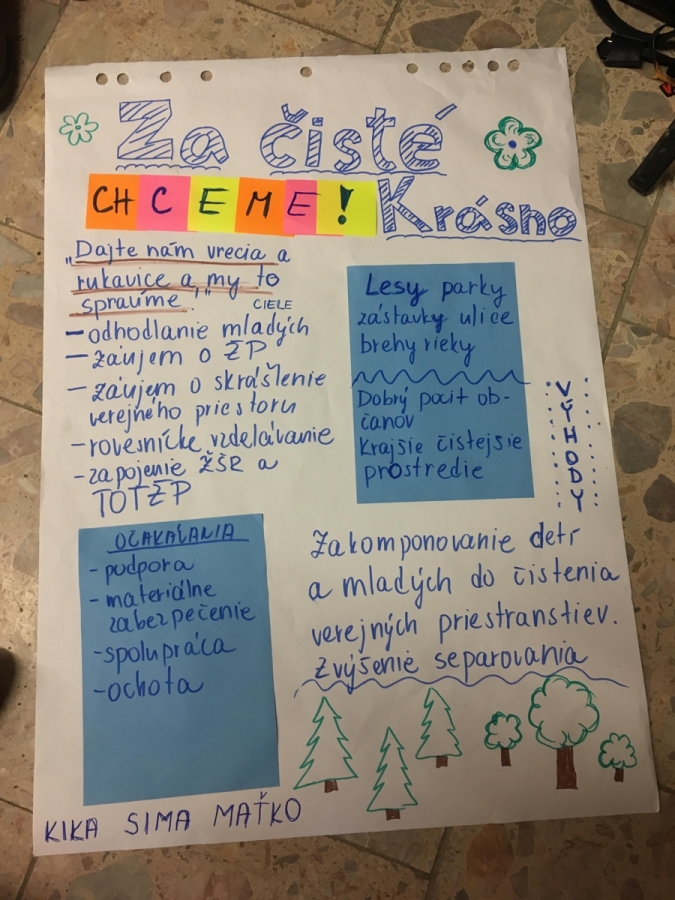 Za čisté
CHCEME!
Krásno
„Dajte nám vrecia a
rukavice a, my to
spravíme."
CIELE
- odhodlanie mladých
- záujem o ŽP
- záujem o skrášlenie
verejného priestoru
- rovesnícke vzdelávanie
- zapojenie ŽŠR a
TOTŽP
Lesy parky
zástavky ulice
brehy rieky
Dobrý pocit ob-
čanov
Krajšie čistejšie
prostredie
VÝHODY
OČAKÁVANIA
- podpora
- materiálne
zabezpečenie
- spolupráca
- ochota
Zakomponovanie detí
a mladých do čistenia
verejných priestranstiev.
Zvýšenie separovania
KIKA SIMA MAŤKO